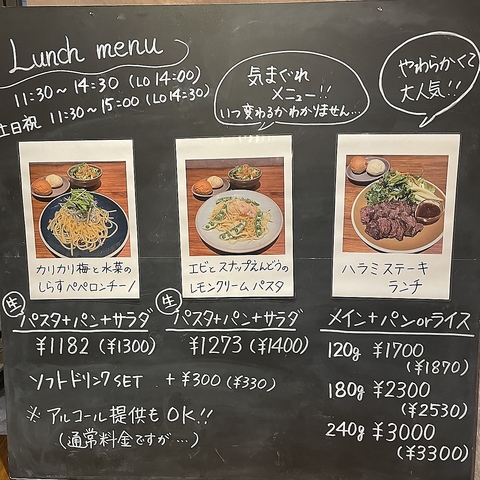 Lunch menu
11:30~14:30 (LO 14:00)
土日祝 11:30~15:00 (LO 14:30)
気まぐれ
メニュー!!
いつ変わるかわかりません…
やわらかくて
大人気!!
カリカリ梅と水菜の
しらすペペロンチーノ
生
パスタ+パン+サラダ
¥1182 (¥1300)
エビとスナップえんどうの
レモンクリームパスタ
生
パスタ+パン+サラダ
¥1273 (¥1400)
ソフトドリンクSET +¥300 (¥330)
※アルコール提供もOK!!
(通常料金ですが…)
ハラミステーキ
ランチ
メイン+パンorライス
120g ¥1700
(¥1870)
180g ¥2300
(¥2530)
240g ¥3000
(¥3300)